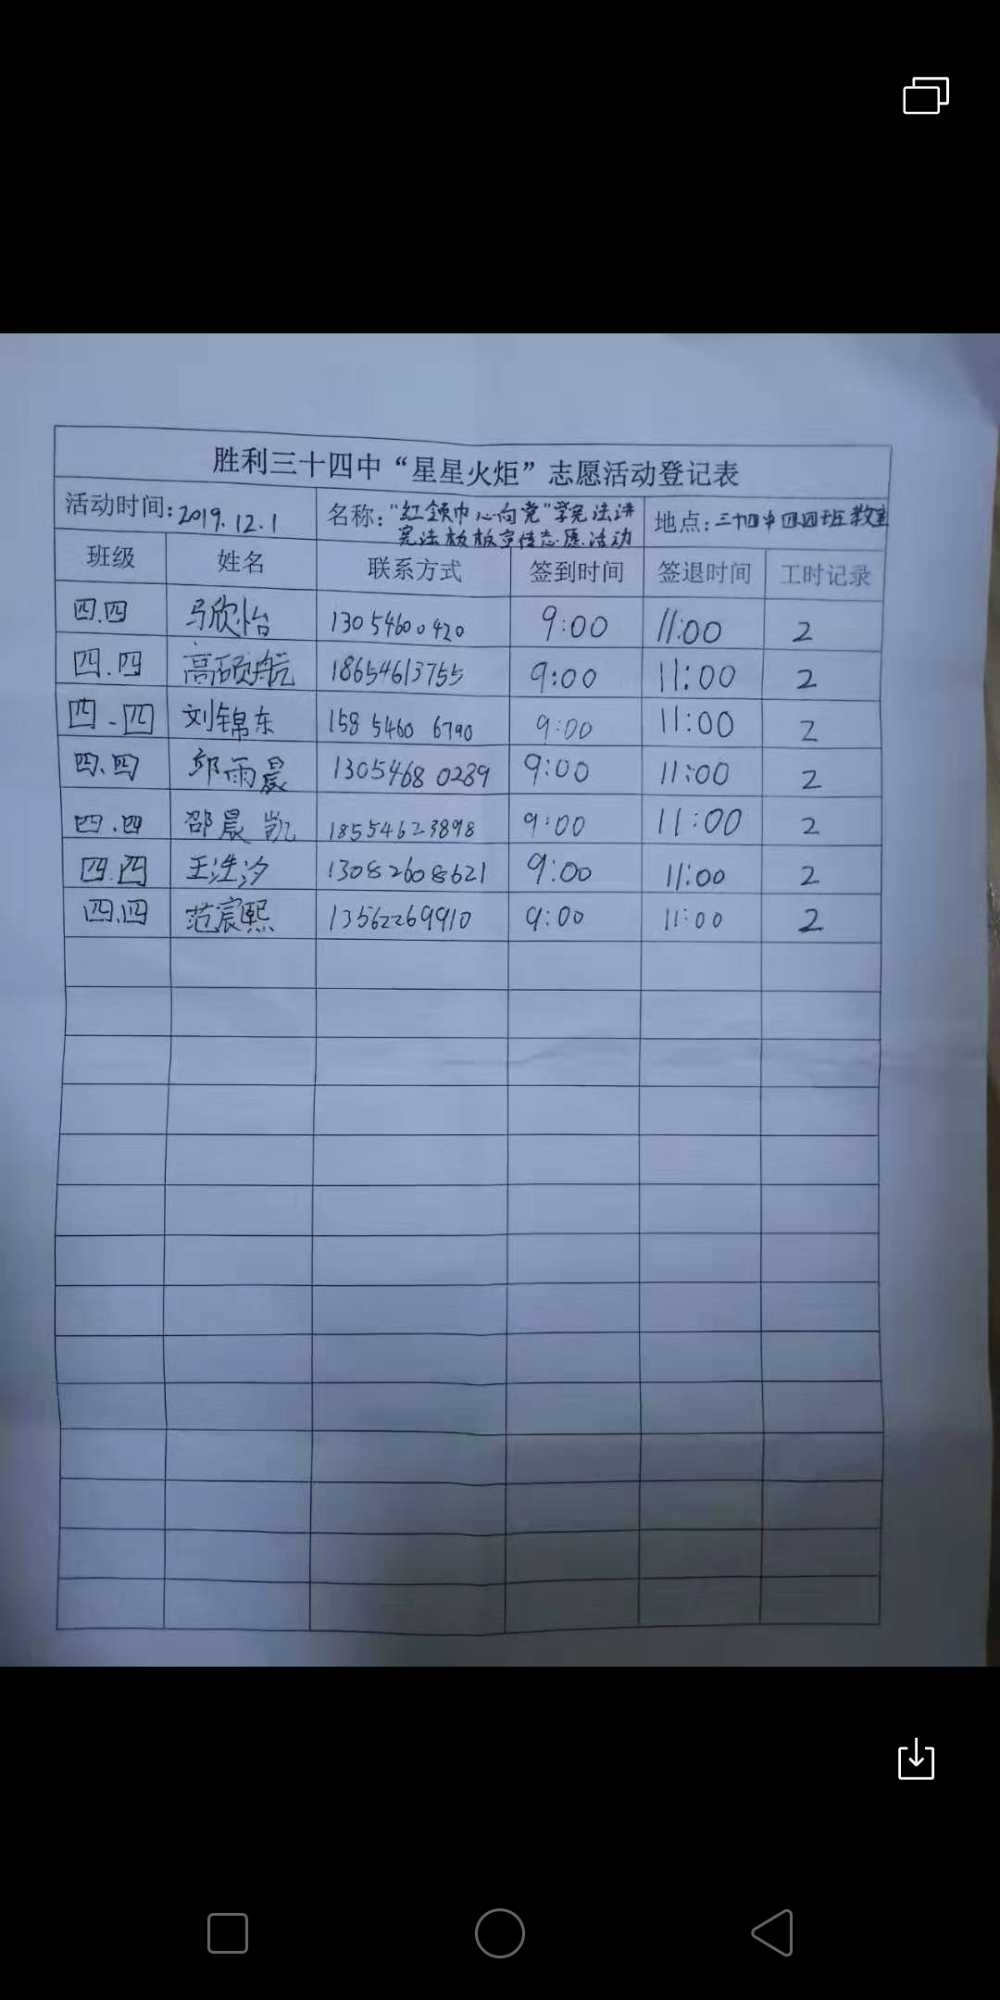 胜利三十四中“星星火炬”志愿活动登记表
活动时间:2019.12.1 名称:“红领巾心向党”学宪法讲 地点:三十四中四四班教室
宪法救板宣传志愿活动
班级 姓名 联系方式 签到时间 签退时间 工时记录
四.四 马欣怡 13054600420 9:00 11:00 2
四.四 高硕航 18654613755 9:00 11:00 2
四.四 刘锦东 158 5460 6790 9:00 11:00 2
四.四 邱雨晨 1305468 0289 9:00 11:00 2
四.四 邵晨凯 18554623898 9:00 11:00 2
四.四 王浩汐 13082608621 9:00 11:00 2
四.四 范宸熙 13562269910 9:00 11:00 2